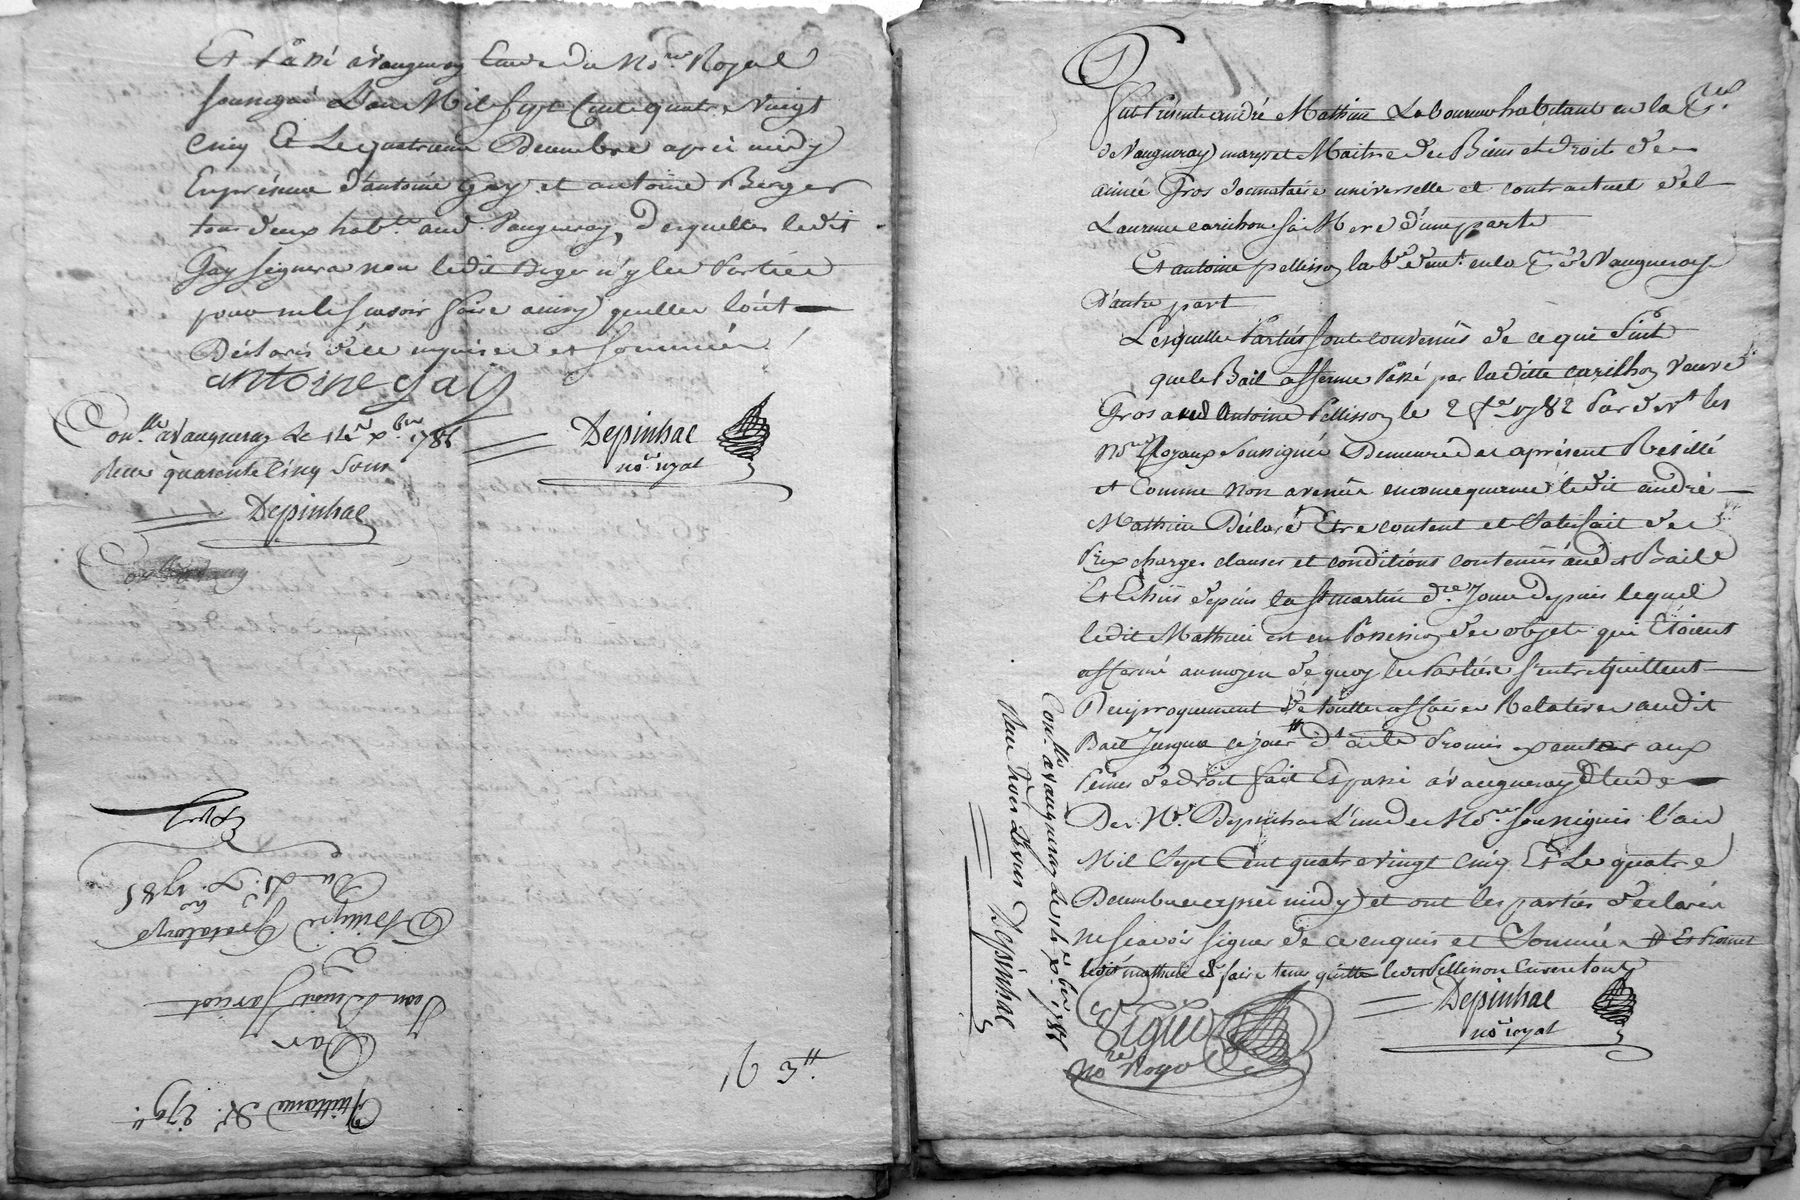 Et Passé a Vaugneray Etude du No.re Royal
soussigné L'an Mil sept Cent quatre Vingt
Cinq Et Le quatrieme Decembre après midy
En présence d'antoine Gay et antoine Berger
tous deux hab.ts aud. Vaugneray, desquelles ledit
Gay signera non ledit Berger n'y les Parties
pour ne le scavoir faire ainsy quelles l'ont
Déclarés de ce enquises et sommées
antoine gay
Depinhac
no.re royal
Con.llé a vaugneray Le 14 x.bre 1785
Reçu quarente Cinq sous
Depinhac
Quittance de 279.tt
Par
Jean
à
Du 4. x.bre 1785
Expé
Fut Présent andré Mathieu Laboureur habitant en la
de Vaugneray mary et Maitre des Biens et droits de
aimée Gros donnataire universelle et contractuel de
Laurence carilhon sa Mere d'une parte
Et antoine pellisson lab.r dem.t en la de Vaugneray
D'autre part
Lesquelles Parties sont convenues de ce qui Suit
que le Bail afferme Passé par laditte carilhon veuve
Gros aud antoine Pellisson le 2 1782 Par dev.t les
No.res Royaux Soussignés Demeure des aprésent Resillé
et Comme non avenüe en consequence ledit andré
Mathieu Déclare Etre content et Satisfait des
Prix charges clauses et conditions contenües aud.t Baile
Et Echus depuis la St martin d.re Jour depuis lequel
ledit Mathieu est en Possession des objets qui Etoient
affermé au moyen de quoy les Parties s'entrequittent
Reciproquement de touttes affaires Relatives audit
Bail Jusqua ce jour
Peines de droit fait Et passé a vaugneray Etude
De M.e Depinhac L'un des No.res soussignés l'an
Mil Sept Cent quatre vingt Cinq Et Le quatre
Decembre après midy et ont les parties déclarés
ne scavoir signer de ce enquis et Sommées # Et Promet
ledit mathieu de faire tenir quitte ledit Pellisson Envers tous
Depinhac
no.re royal
no.re Royal
Con.llé a vaugneray Le 14 x.bre 1785
Reçu trois Livres Depinhac